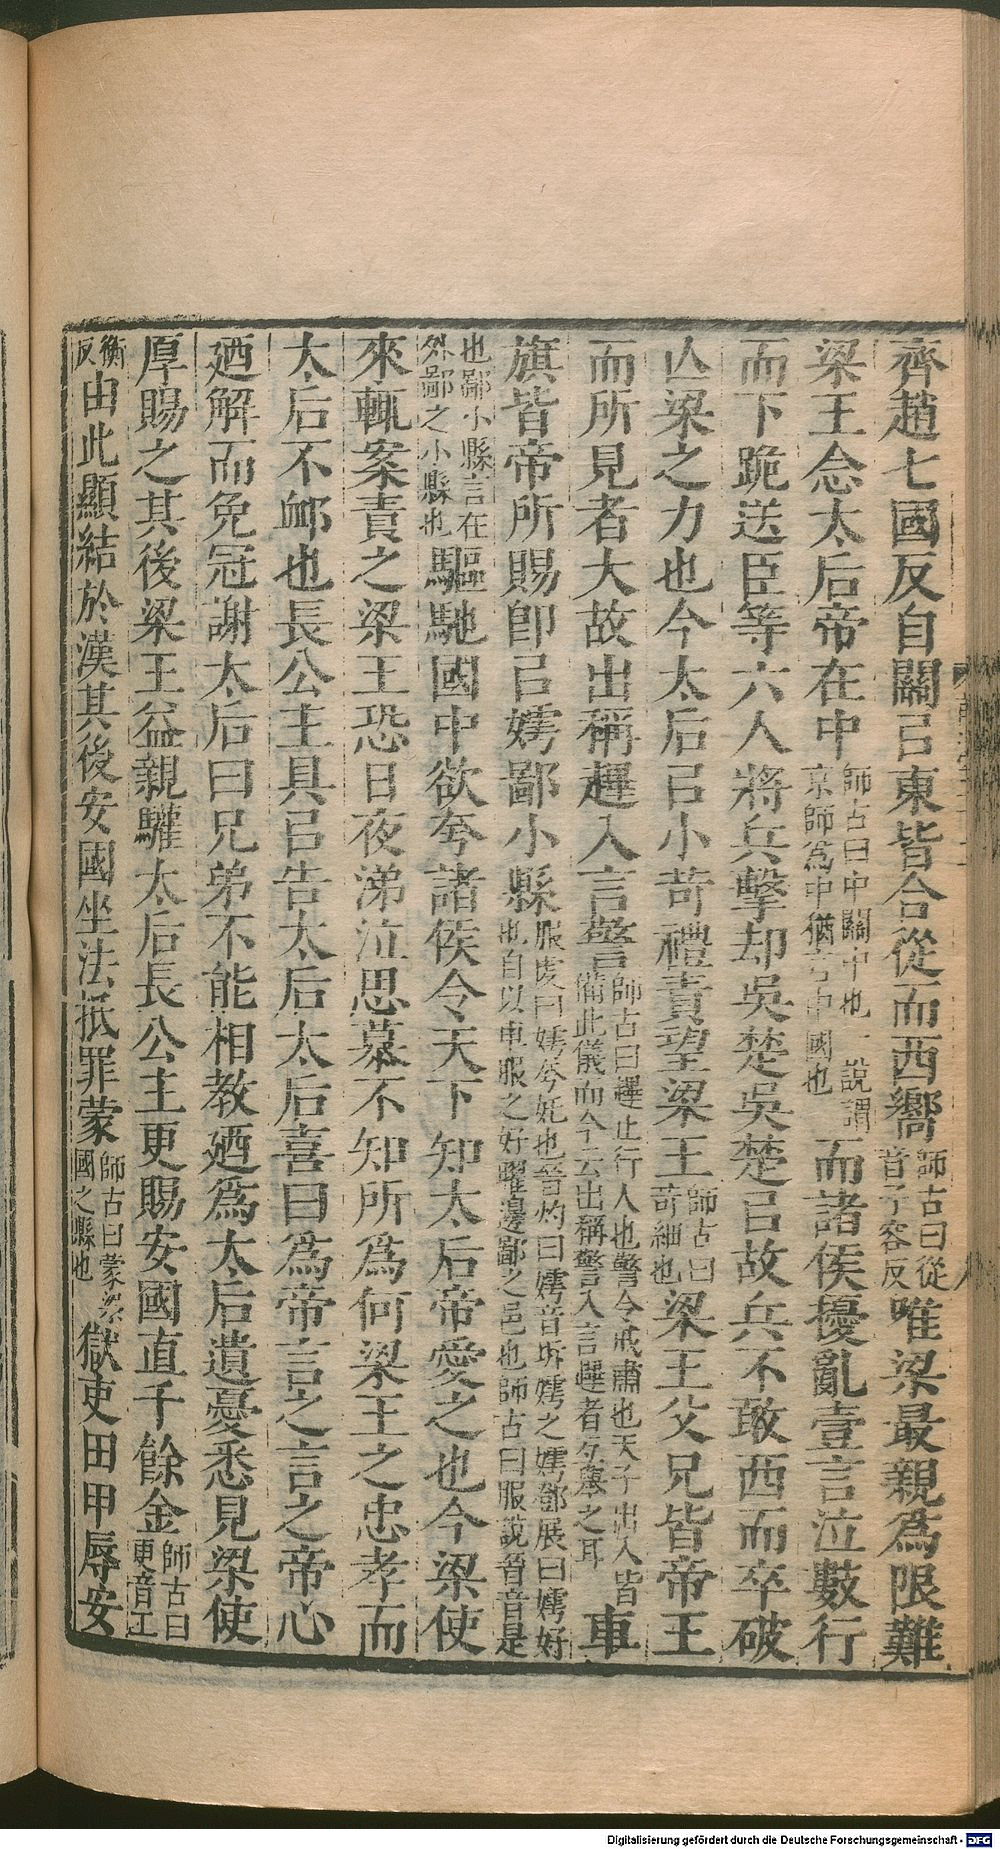 齊趙七國反自關㠯東皆合從而西嚮師古曰從音子容反唯梁最親爲限難
梁王念太后帝在中師古曰中關中也一說謂京師爲中猶言中國也而諸侯擾亂壹言泣數行
而下跪送臣等六人將兵擊却吳楚吳楚㠯故兵不敢西而卒破
亾梁之力也今太后㠯小苛禮責望梁王師古曰苛細也梁王父兄皆帝王
而所見者大故出稱趕入言警師古曰趕止行人也警令戒肅也天子出入皆備此儀而今云出稱警入言趕者互舉之耳車
旗皆帝所賜卽㠯嫮鄙小縣服虔曰嫮夸姹也晉灼曰嫮音坼嫮之嫮鄧展曰嫮好也自以車服之好曜邊鄙之邑也師古曰服說晉音是
也鄙小縣言在外鄙之小縣也驅馳國中欲夸諸侯令天下知太后帝愛之也今梁使
來輒案責之梁王恐日夜涕泣思慕不知所爲何梁王之忠孝而
太后不卹也長公主具㠯告太后太后喜曰爲帝言之言之帝心
廼解而免冠謝太后曰兄弟不能相教廼爲太后遺憂悉見梁使
厚賜之其後梁王益親驩太后長公主更賜安國直千餘金師古曰更音工
衡反由此顯結於漢其後安國坐法抵罪蒙師古曰蒙梁國之縣也獄吏田甲辱安
Digitalisierung gefördert durch die Deutsche Forschungsgemeinschaft - DFG